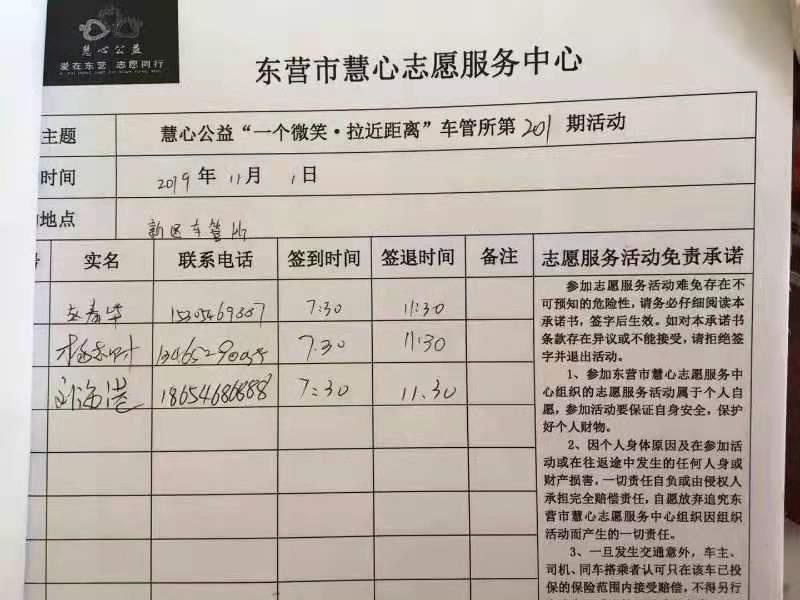 慧心公益
爱在东营 志愿同行
东营市慧心志愿服务中心
主题 慧心公益“一个微笑·拉近距离”车管所第201期活动
时间 2019年11月1日
地点 新区车管所
实名 联系电话 签到时间 签退时间 备注 志愿服务活动免责承诺
7:30 11:30
7:30 11:30
刘海港 18654686888 7:30 11:30
参加志愿服务活动难免存在不
可预知的危险性，请务必仔细阅读本
承诺书，签字后生效。如对本承诺书
条款存在异议或不能接受，请拒绝签
字并退出活动。
1、参加东营市慧心志愿服务中
心组织的志愿服务活动属于个人自
愿，参加活动要保证自身安全，保护
好个人财物。
2、因个人身体原因及在参加活
动或在往返途中发生的任何人身或
财产损害，一切责任自负或由侵权人
承担完全赔偿责任，自愿放弃追究东
营市慧心志愿服务中心组织因组织
活动而产生的一切责任。
3、一旦发生交通意外，车主、
司机、同车搭乘者认可只在该车已投
保的保险范围内接受赔偿，不得另行